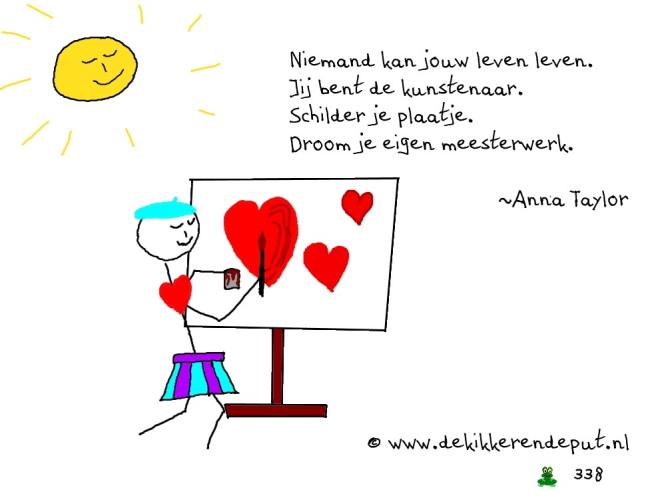 Niemand kan jouw leven leven.
Jij bent de kunstenaar.
Schilder je plaatje.
Droom je eigen meesterwerk.
~Anna Taylor
© www.dekikkerendeput.nl
338